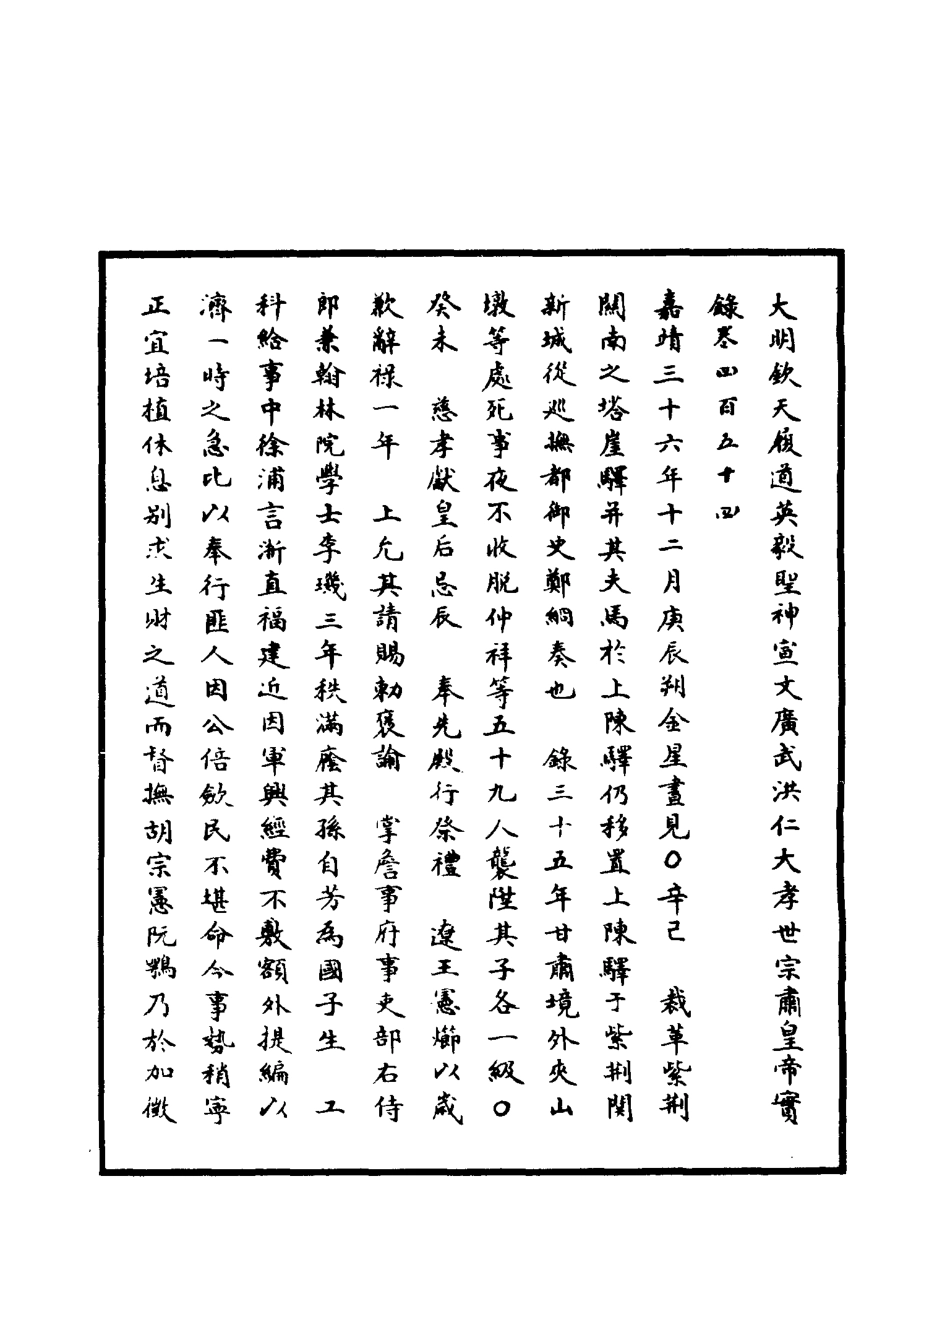 大明欽天履道英毅聖神宣文廣武洪仁大孝世宗肅皇帝實
錄卷四百五十四
嘉靖三十六年十二月庚辰朔金星晝見○辛巳　裁革紫荆
關南之塔崖驛并其夫馬於上陳驛仍移置上陳驛于紫荆関
新城從廵撫都御史鄭絅奏也　錄三十五年甘肅境外夾山
墩等處死事夜不收脱仲祥等五十九人襲陞其子各一級○
癸未　慈孝獻皇后忌辰　奉先殿行祭禮　遼王憲㸅以歲
歉辭祿一年　上允其請賜勅褒諭　掌詹事府事吏部右侍
郎兼翰林院學士李璣三年秩滿廕其孫自芳為國子生　工
科給事中徐浦言浙直福建近因軍興經費不敷額外提編以
濟一時之急比以奉行匪人因公倍歛民不堪命今事勢稍寜
正宜培植休息别求生財之道而督撫胡宗憲阮鶚乃於加徵